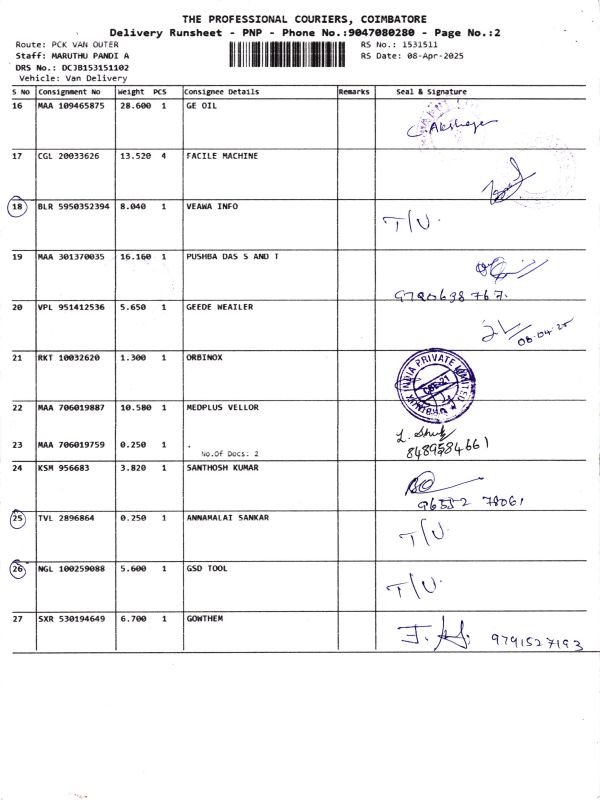 THE PROFESSIONAL COURIERS, COIMBATORE
Delivery Runsheet - PNP - Phone No.:9047080280 - Page No.:2
Route: PCK VAN OUTER RS No.: 1531511
Staff: MARUTHU PANDI A RS Date: 08-Apr-2025
DRS No.: DCJB153151102
Vehicle: Van Delivery
S No Consignment No Weight PCS Consignee Details Remarks Seal & Signature
16 MAA 109465875 28.600 1 GE OIL
17 CGL 20033626 13.520 4 FACILE MACHINE
18 BLR 5950352394 8.040 1 VEAWA INFO T/U.
19 MAA 301370035 16.160 1 PUSHBA DAS S AND T
20 VPL 951412536 5.650 1 GEEDE WEAILER
08.04.25
21 RKT 10032620 1.300 1 ORBINOX INDIA PRIVATE LIMITED
22 MAA 706019887 10.580 1 MEDPLUS VELLOR
23 MAA 706019759 0.250 1 .
No.Of Docs: 2
8489584661
24 KSM 956683 3.820 1 SANTHOSH KUMAR
25 TVL 2896864 0.250 1 ANNAMALAI SANKAR T/U.
26 NGL 100259088 5.600 1 GSD TOOL T/U.
27 SXR 530194649 6.700 1 GOWTHEM 9791527193